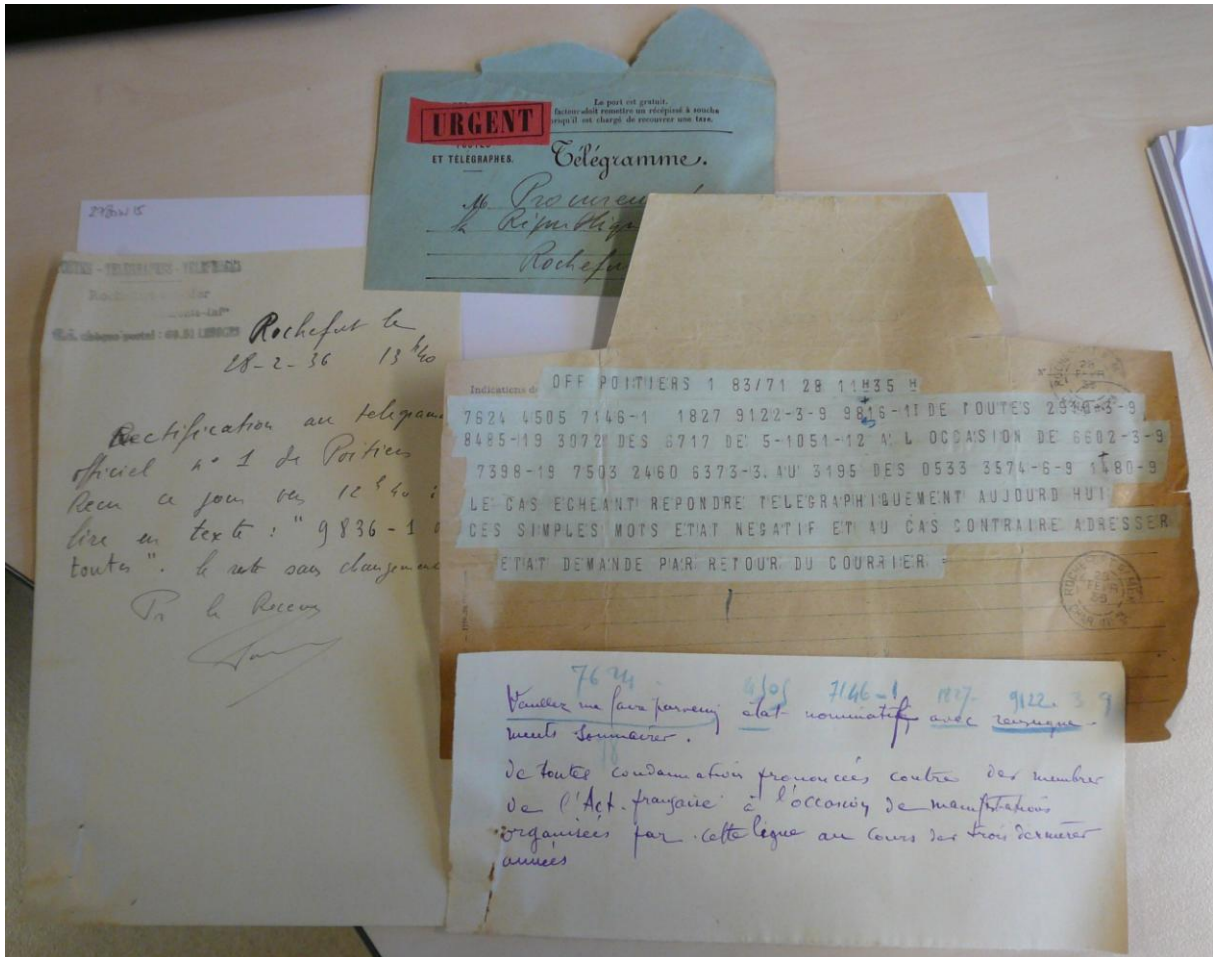 Le port est gratuit.
facteur doit remettre un récépissé à souche
lorsqu'il est chargé de recouvrer une taxe.
URGENT
ET TÉLÉGRAPHES.
Télégramme.
M. Procureur
la République
Rochefort
POSTES - TÉLÉGRAPHES - TÉLÉPHONES
chèque postal :
Rochefort le
28-2-36 13h40
Rectification au telegramme
officiel n° 1 de Poitiers
Recu ce jour vers 12h40 :
lire en texte : " 9836-1
toutes ". le reste sans changement
Pr le Receveur
Indications de
OFF POITIERS 1 83/71 28 11H35 H
7624 4505 7146-1 1827 9122-3-9 9816-1 DE TOUTES 2919-3-9
8485-19 3072 DES 6717 DE 5-1051-12 A L OCCASION DE 6602-3-9
7398-19 7503 2460 6373-3. AU 3195 DES 0533 3574-6-9 1480-9
LE CAS ECHEANT REPONDRE TELEGRAPHIQUEMENT AUJOURD HUI
CES SIMPLES MOTS ETAT NEGATIF ET AU CAS CONTRAIRE ADRESSER
ETAT DEMANDE PAR RETOUR DU COURRIER =
7624 4505 7146-1 1827 9122-3 9
Veuillez me faire parvenir état nominatif avec renseigne-
ments sommaires.
de toutes condamnations prononcées contre des membres
de l'Act. française à l'occasion de manifestations
organisées par cette ligue au cours des trois dernières
années